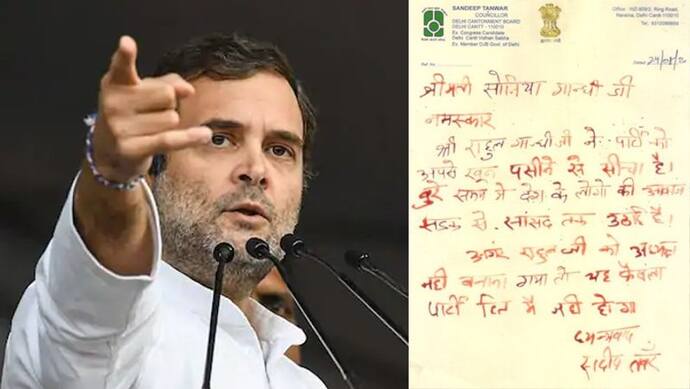 SANDEEP TANWAR
COUNCILLOR
DELHI CANTONMENT BOARD
DELHI CANTT - 110010
Ex. Congress Candidate
Delhi Cantt Vidhan Sabha
Ex. Member DJB Govt. of Delhi
Office : Ring Road,
Naraina, Delhi Cantt-110010
श्रीमती सोनिया गान्धी जी
नमस्कार
श्री राहुल गान्धी जी ने पार्टी को
अपने खून पसीने से सीचा है।
बुरे समय मे देश के लोगो की आवाज
सडक से सांसद तक उठाई है।
अगर राहुल जी को अध्यक्ष
नही बनाया गया तो यह फैसला
पार्टी हित मै नही होगा
धन्यवाद